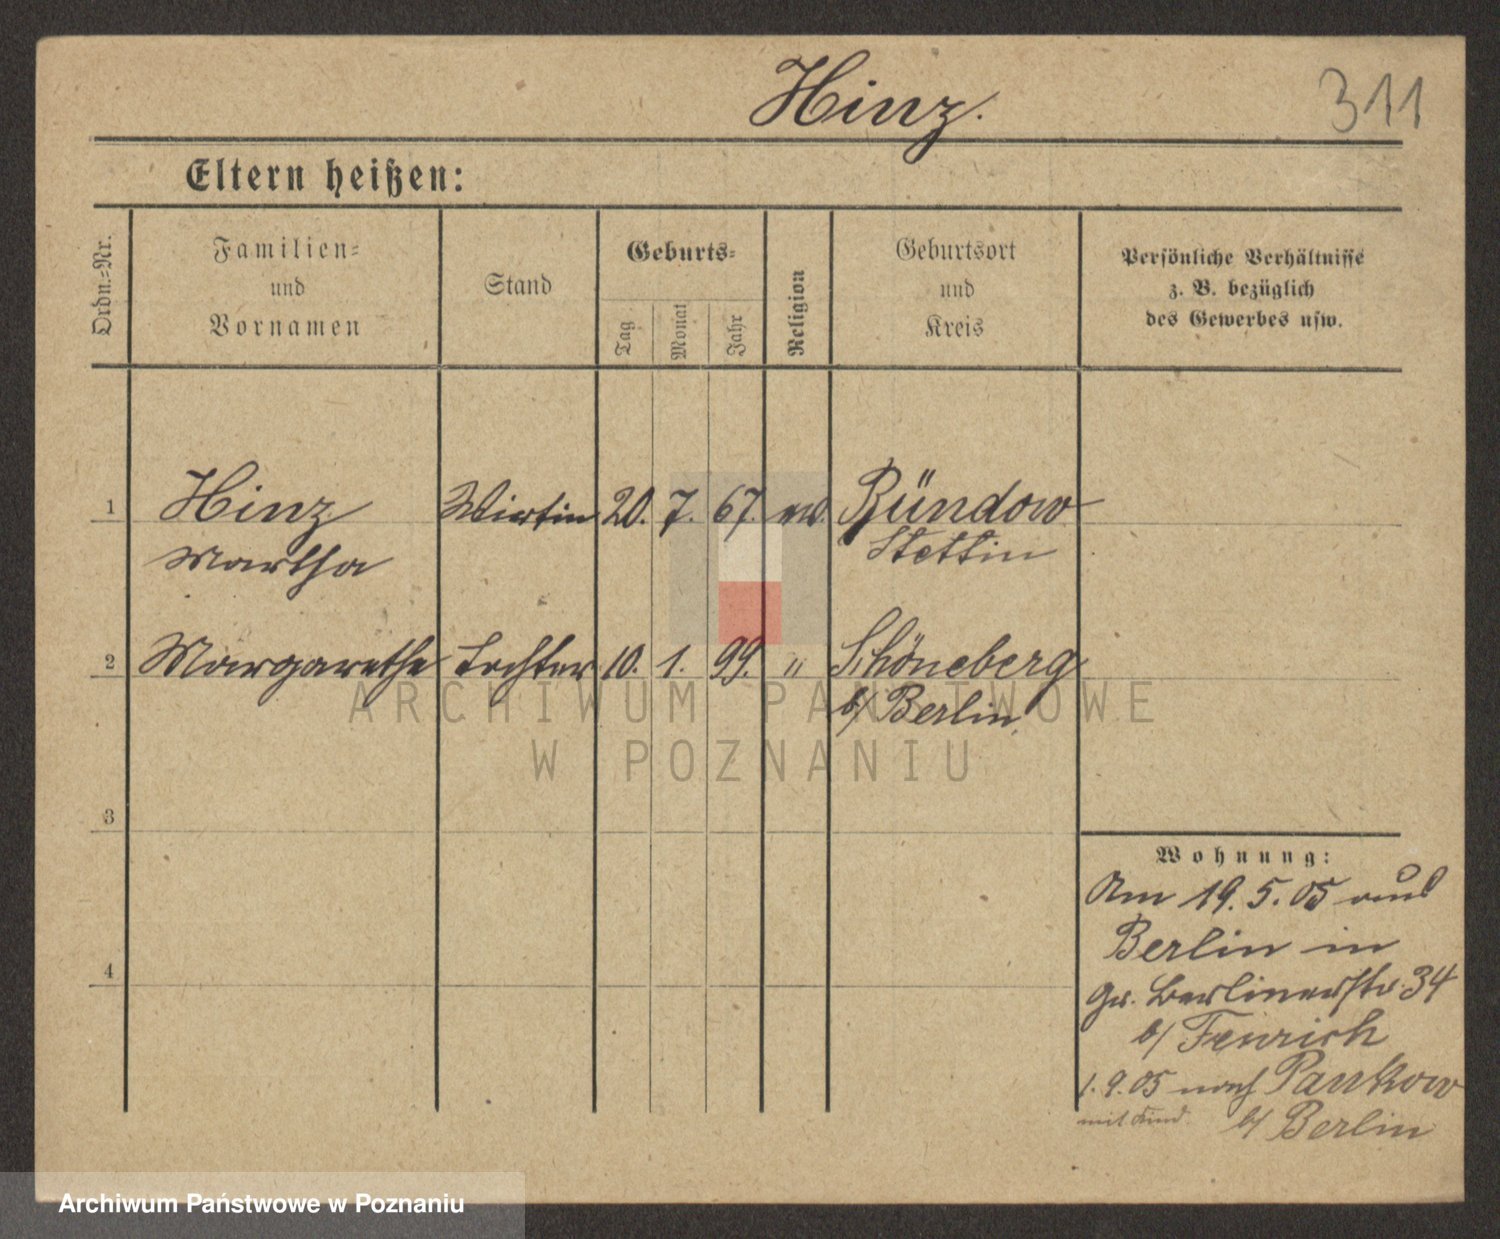 Hinz.
311
Eltern heißen:
Ordn.=Nr.
Familien=
und
Vornamen
Stand
Geburts=
Tag
Monat
Jahr
Religion
Geburtsort
und
Kreis
Persönliche Verhältnisse
z. B. bezüglich
des Gewerbes usw.
1 Hinz Wirtin 20. 7. 67. ev. Bündow
Martha Stettin
2 Margarethe Tochter 10. 1. 99. " Schöneberg
b/ Berlin.
3
4
Wohnung:
Am 19. 5. 05 aus
Berlin in
Gr. Berlinerstr. 34
b/ Fenrich
1. 9. 05 nach Pankow
mit Kind. b/ Berlin
ARCHIWUM PAŃSTWOWE
W POZNANIU
Archiwum Państwowe w Poznaniu